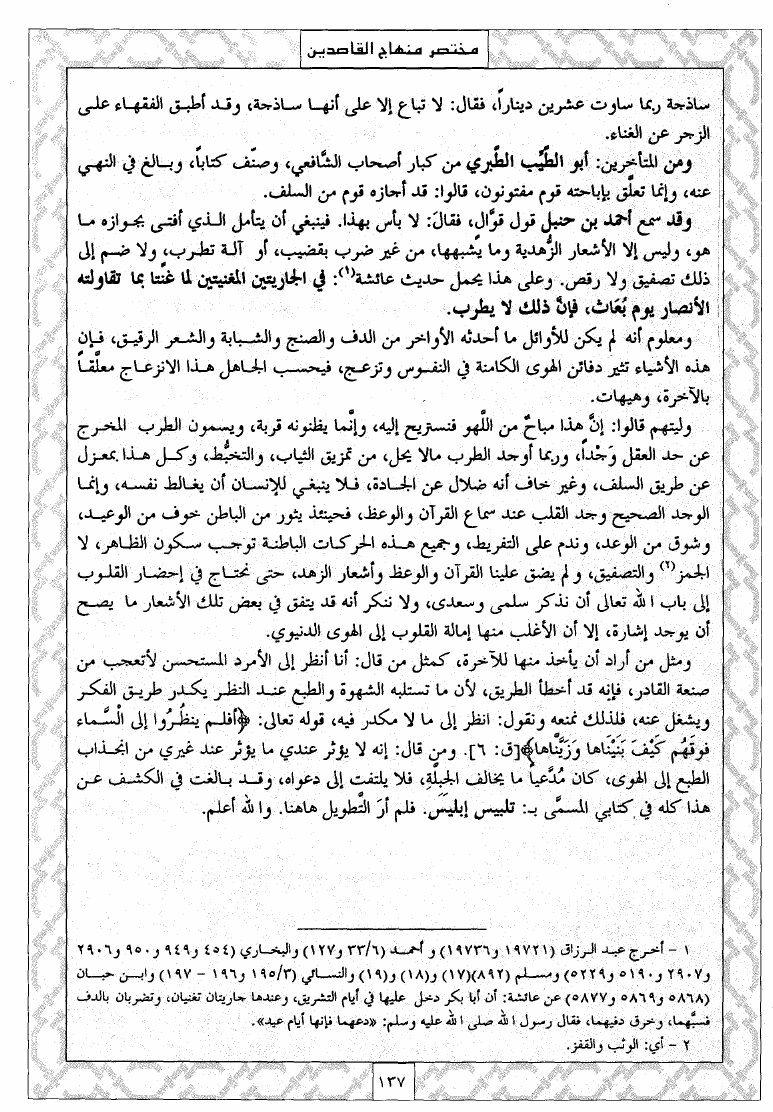 مختصر منهاج القاصدين
ساذجة ربما ساوت عشرين ديناراً، فقال: لا تباع إلا على أنها ساذجة، وقد أطبق الفقهاء على
الزجر عن الغناء.
ومن المتأخرين: أبو الطَّيِّب الطَّبري من كبار أصحاب الشَّافعي، وصنَّف كتاباً، وبالغ في النهي
عنه، وإنما تعلَّق بإباحته قوم مفتونون، قالوا: قد أجازه قوم من السلف.
وقد سمع أحمد بن حنبل قول قوَّال، فقالَ: لا بأس بهذا. فينبغي أن يتأمل الذي أفتى بجوازه ما
هو، وليس إلا الأشعار الزُّهدية وما يشبهها، من غير ضرب بقضيب، أو آلة تطرب، ولا ضم إلى
ذلك تصفيق ولا رقص. وعلى هذا يحمل حديث عائشة(١): في الجاريتين المغنيتين لما غنتا بما تقاولته
الأنصار يوم بُعَاث، فإنَّ ذلك لا يطرب.
ومعلوم أنه لم يكن للأوائل ما أحدثه الأواخر من الدف والصنج والشبابة والشعر الرقيق، فإن
هذه الأشياء تثير دفائن الهوى الكامنة في النفوس وتزعج، فيحسب الجاهل هذا الانزعاج معلَّقاً
بالآخرة، وهيهات.
وليتهم قالوا: إنَّ هذا مباحٌ من اللَّهو فنستريح إليه، وإنَّما يظنونه قربة، ويسمون الطرب المخرج
عن حد العقل وَجْداً، وربما أوجد الطرب مالا يحل، من تمزيق الثياب، والتخبُّط، وكل هذا بمعزل
عن طريق السلف، وغير خاف أنه ضلال عن الجادة، فلا ينبغي للإنسان أن يغالط نفسه، وإنما
الوجد الصحيح وجد القلب عند سماع القرآن والوعظ، فحينئذ يثور من الباطن خوف من الوعيد،
وشوق من الوعد، وندم على التفريط، وجميع هذه الحركات الباطنة توجب سكون الظاهر، لا
الجمز(٢) والتصفيق، ولم يضق علينا القرآن والوعظ وأشعار الزهد، حتى نحتاج في إحضار القلوب
إلى باب الله تعالى أن نذكر سلمى وسعدى، ولا ننكر أنه قد يتفق في بعض تلك الأشعار ما يصح
أن يوجد إشارة، إلا أن الأغلب منها إمالة القلوب إلى الهوى الدنيوي.
ومثل من أراد أن يأخذ منها للآخرة، كمثل من قال: أنا أنظر إلى الأمرد المستحسن لأتعجب من
صنعة القادر، فإنه قد أخطأ الطريق، لأن ما تستلبه الشهوة والطبع عند النظر يكدر طريق الفكر
ويشغل عنه، فلذلك نمنعه ونقول: انظر إلى ما لا مكدر فيه، قوله تعالى: ﴿أفلم ينظُرُوا إلى السَّماء
فوقَهُم كَيْفَ بَنَيْنَاها وَزَيَّنَّاها﴾[ق: ٦]. ومن قال: إنه لا يؤثر عندي ما يؤثر عند غيري من انجذاب
الطبع إلى الهوى، كان مُدَّعياً ما يخالف الجبلَّةِ، فلا يلتفت إلى دعواه، وقد بالغت في الكشف عن
هذا كله في كتابي المسمَّى بـ: تلبيس إبليسَ. فلم أرَ التَّطويل هاهنا. والله أعلم.
١ - أخرج عبد الرزاق (١٩٧٢١ و١٩٧٣٦) و أحمد (٣٣/٦ و١٢٧) والبخاري (٤٥٤ و٩٤٩ و٩٥٠ و٢٩٠٦
و٢٩٠٧ و٥١٩٠ و٥٢٢٩) ومسلم (٨٩٢)(١٧) و(١٨) و(١٩) والنسائي (١٩٥/٣ و١٩٦ - ١٩٧) وابن حبان
(٥٨٦٨ و٥٨٦٩ و٥٨٧٧) عن عائشة: أن أبا بكر دخل عليها في أيام التشريق، وعندها جاريتان تغنيان، وتضربان بالدف
فسبَّهما، وخرق دفيهما، فقال رسول الله صلى الله عليه وسلم: «دعهما فإنها أيام عيد».
٢ - أي: الوثب والقفز.
١٣٧